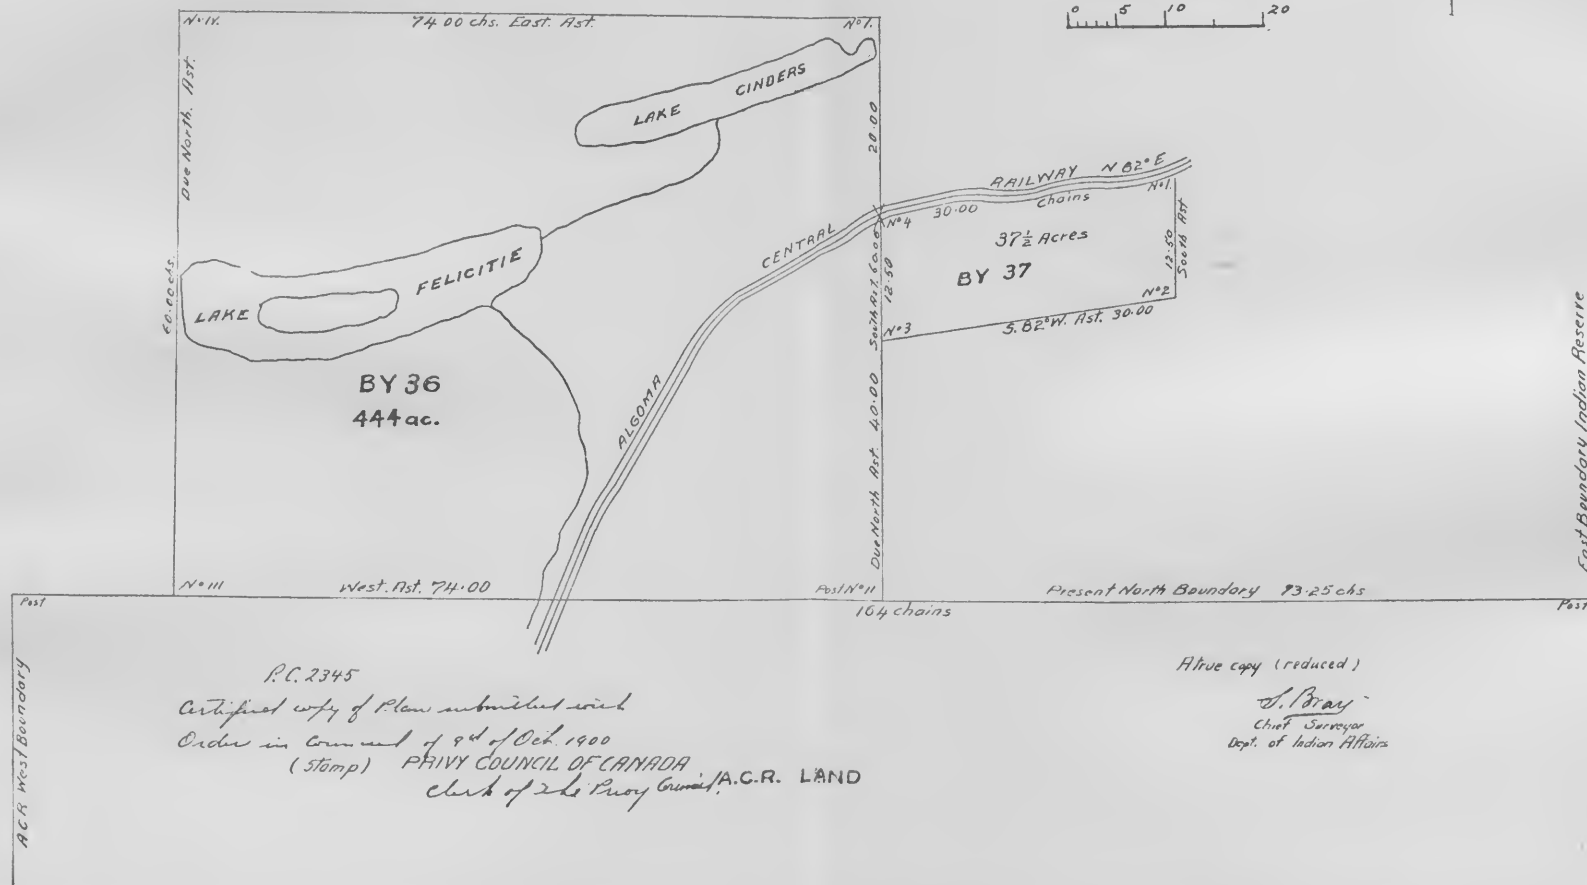 0 5 10 20
No IV. 74.00 chs. East. Ast. No I.
Due North. Ast.
60.00 chs.
LAKE CINDERS
20.00
LAKE FELICITIE
BY 36
444 ac.
ALGOMA CENTRAL RAILWAY N 82° E
No 4 30.00 Chains No 1.
37½ Acres
BY 37
12.50
South Ast
No 2
No 3 S. 82° W. Ast. 30.00
South Ast. 60.00
12.50
Due North Ast. 40.00
East Boundary Indian Reserve
No III West. Ast. 74.00 Post No II
Present North Boundary 93.25 chs
Post 164 chains Post
A C R West Boundary
P.C. 2345
Certified copy of Plan submitted with
Order in Council of 9th of Oct. 1900
(Stamp) PRIVY COUNCIL OF CANADA
Clerk of The Privy Council
A.C.R. LAND
A true copy (reduced)
S. Bray
Chief Surveyor
Dept. of Indian Affairs